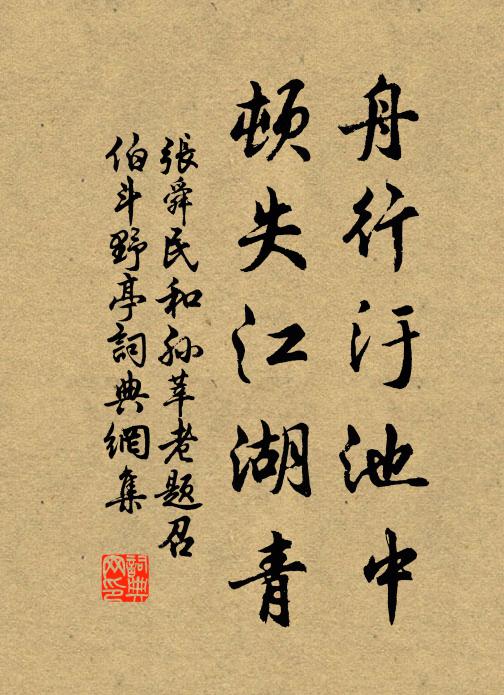 舟行汙池中
頓失江湖青
張舜民和孙莘老題召
伯斗野亭詞典網集
詞典
网印